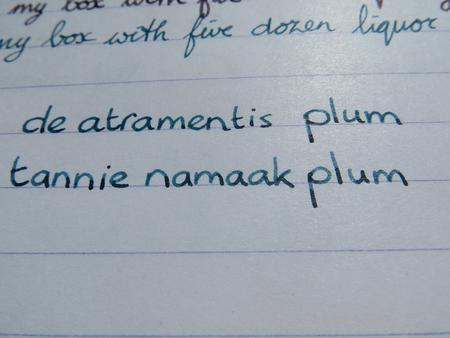 my box with five
my box with five dozen liquor
de atramentis plum
tannie namaak plum